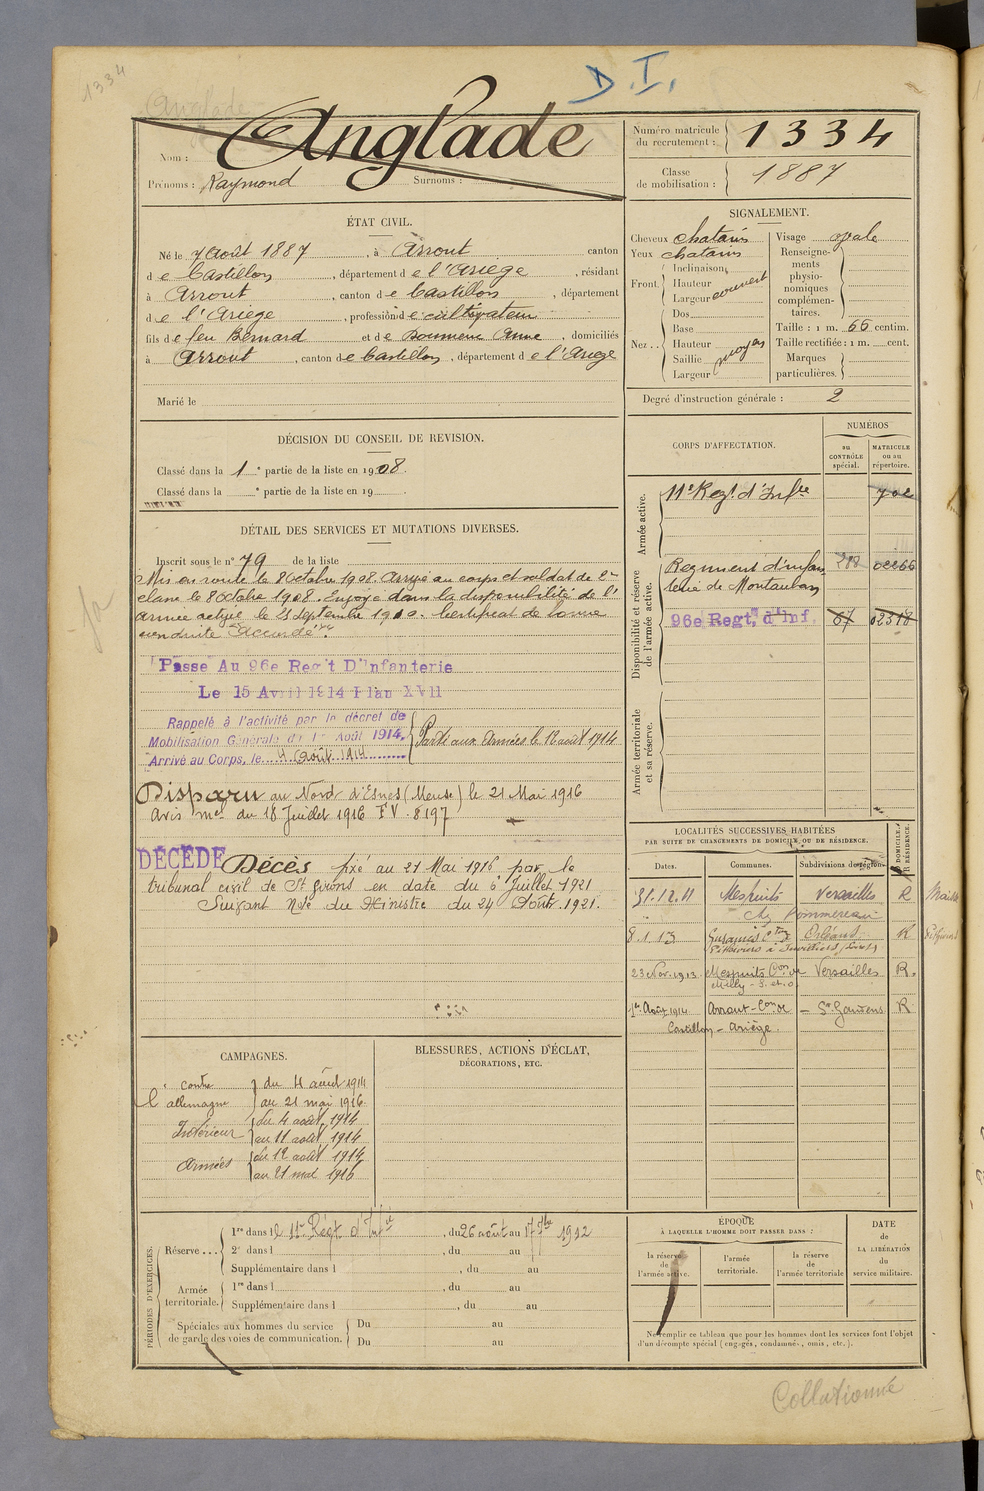 1334
D.I.
Anglade
Nom : Anglade
Prénoms : Raymond Surnoms :
Numéro matricule du recrutement : 1334
Classe de mobilisation : 1887
ÉTAT CIVIL.
Né le 7 Août 1887, à Arrout canton
de Castillon, département de l'Ariège, résidant
à Arrout, canton de Castillon, département
de l'Ariège, profession de cultivateur
fils de feu Bernard et de Anne, domiciliés
à Arrout, canton de Castillon, département de l'Ariège
Marié le
SIGNALEMENT.
Cheveux chatains
Yeux chatains
Front. Inclinaison
Hauteur
Largeur couvert
Nez .. Dos
Base
Hauteur moyen
Saillie
Largeur
Visage ovale
Renseigne-
ments
physio-
nomiques
complémen-
taires.
Taille : 1 m. 66 centim.
Taille rectifiée : 1 m. cent.
Marques
particulières.
Degré d'instruction générale : 2
DÉCISION DU CONSEIL DE REVISION.
Classé dans la 1e partie de la liste en 1908.
Classé dans la e partie de la liste en 19
DÉTAIL DES SERVICES ET MUTATIONS DIVERSES.
Inscrit sous le n° 79 de la liste
Mis en route le 8 octobre 1908. Arrivé au corps et soldat de 2me
classe le 8 octobre 1908. Envoyé dans la disponibilité de l'
armée active le 25 septembre 1910. Certificat de bonne
conduite "Accordé".
Passe Au 96e Reg't D'Infanterie
Le 15 Avril 1914 Plan XVII
Rappelé à l'activité par le décret de
Mobilisation Générale du 1er Août 1914.
Arrivé au Corps, le 4 Août 1914
Parti aux Armées le 12 août 1914
Disparu au Nord d'Esnes (Meuse) le 21 Mai 1916
Avis mel du 18 Juillet 1916 FV. 8197
DÉCÉDÉ Décès fixé au 21 Mai 1916 par le
tribunal civil de St Girons en date du 6 Juillet 1921
Suivant Note du Ministre du 24 Août 1921.
CORPS D'AFFECTATION.
NUMÉROS
au CONTRÔLE spécial.
MATRICULE ou au répertoire.
Armée active.
11e Regt d'Infie
Disponibilité et réserve de l'armée active.
Regiment d'infan
terie de Montauban
96e Regt, d'Inf. 67 02318
Armée territoriale et sa réserve.
LOCALITÉS SUCCESSIVES HABITÉES
PAR SUITE DE CHANGEMENTS DE DOMICILE OU DE RÉSIDENCE.
Dates. Communes. Subdivisions de région. D DOMICILE. R RÉSIDENCE.
31.12.11 Mespuits Versailles R
chez Pommereau
8.1.13 Orléans R
23 Nov. 1913 Mespuits Con de Versailles R.
Milly - S. et O.
1er Août 1914 Arrout - Con de - St Gaudens R
Castillon - Ariège.
CAMPAGNES.
contre l'allemagne du 4 août 1914
au 21 mai 1916.
Intérieur du 4 août 1914
au 11 août 1914
Armées du 12 août 1914
au 21 mai 1916
BLESSURES, ACTIONS D'ÉCLAT,
DÉCORATIONS, ETC.
PÉRIODES D'EXERCICES.
Réserve ... 1re dans le 11e Régt d'Infie, du 26 août au 17 7bre 1912
2e dans l , du au
Supplémentaire dans l , du au
Armée territoriale. 1re dans l , du au
Supplémentaire dans l , du au
Spéciales aux hommes du service
de garde des voies de communication. Du au
Du au
ÉPOQUE
À LAQUELLE L'HOMME DOIT PASSER DANS :
la réserve de l'armée active.
l'armée territoriale.
la réserve de l'armée territoriale
DATE de LA LIBÉRATION du service militaire.
Ne remplir ce tableau que pour les hommes dont les services font l'objet
d'un décompte spécial (engagés, condamnés, omis, etc.).
Collationné